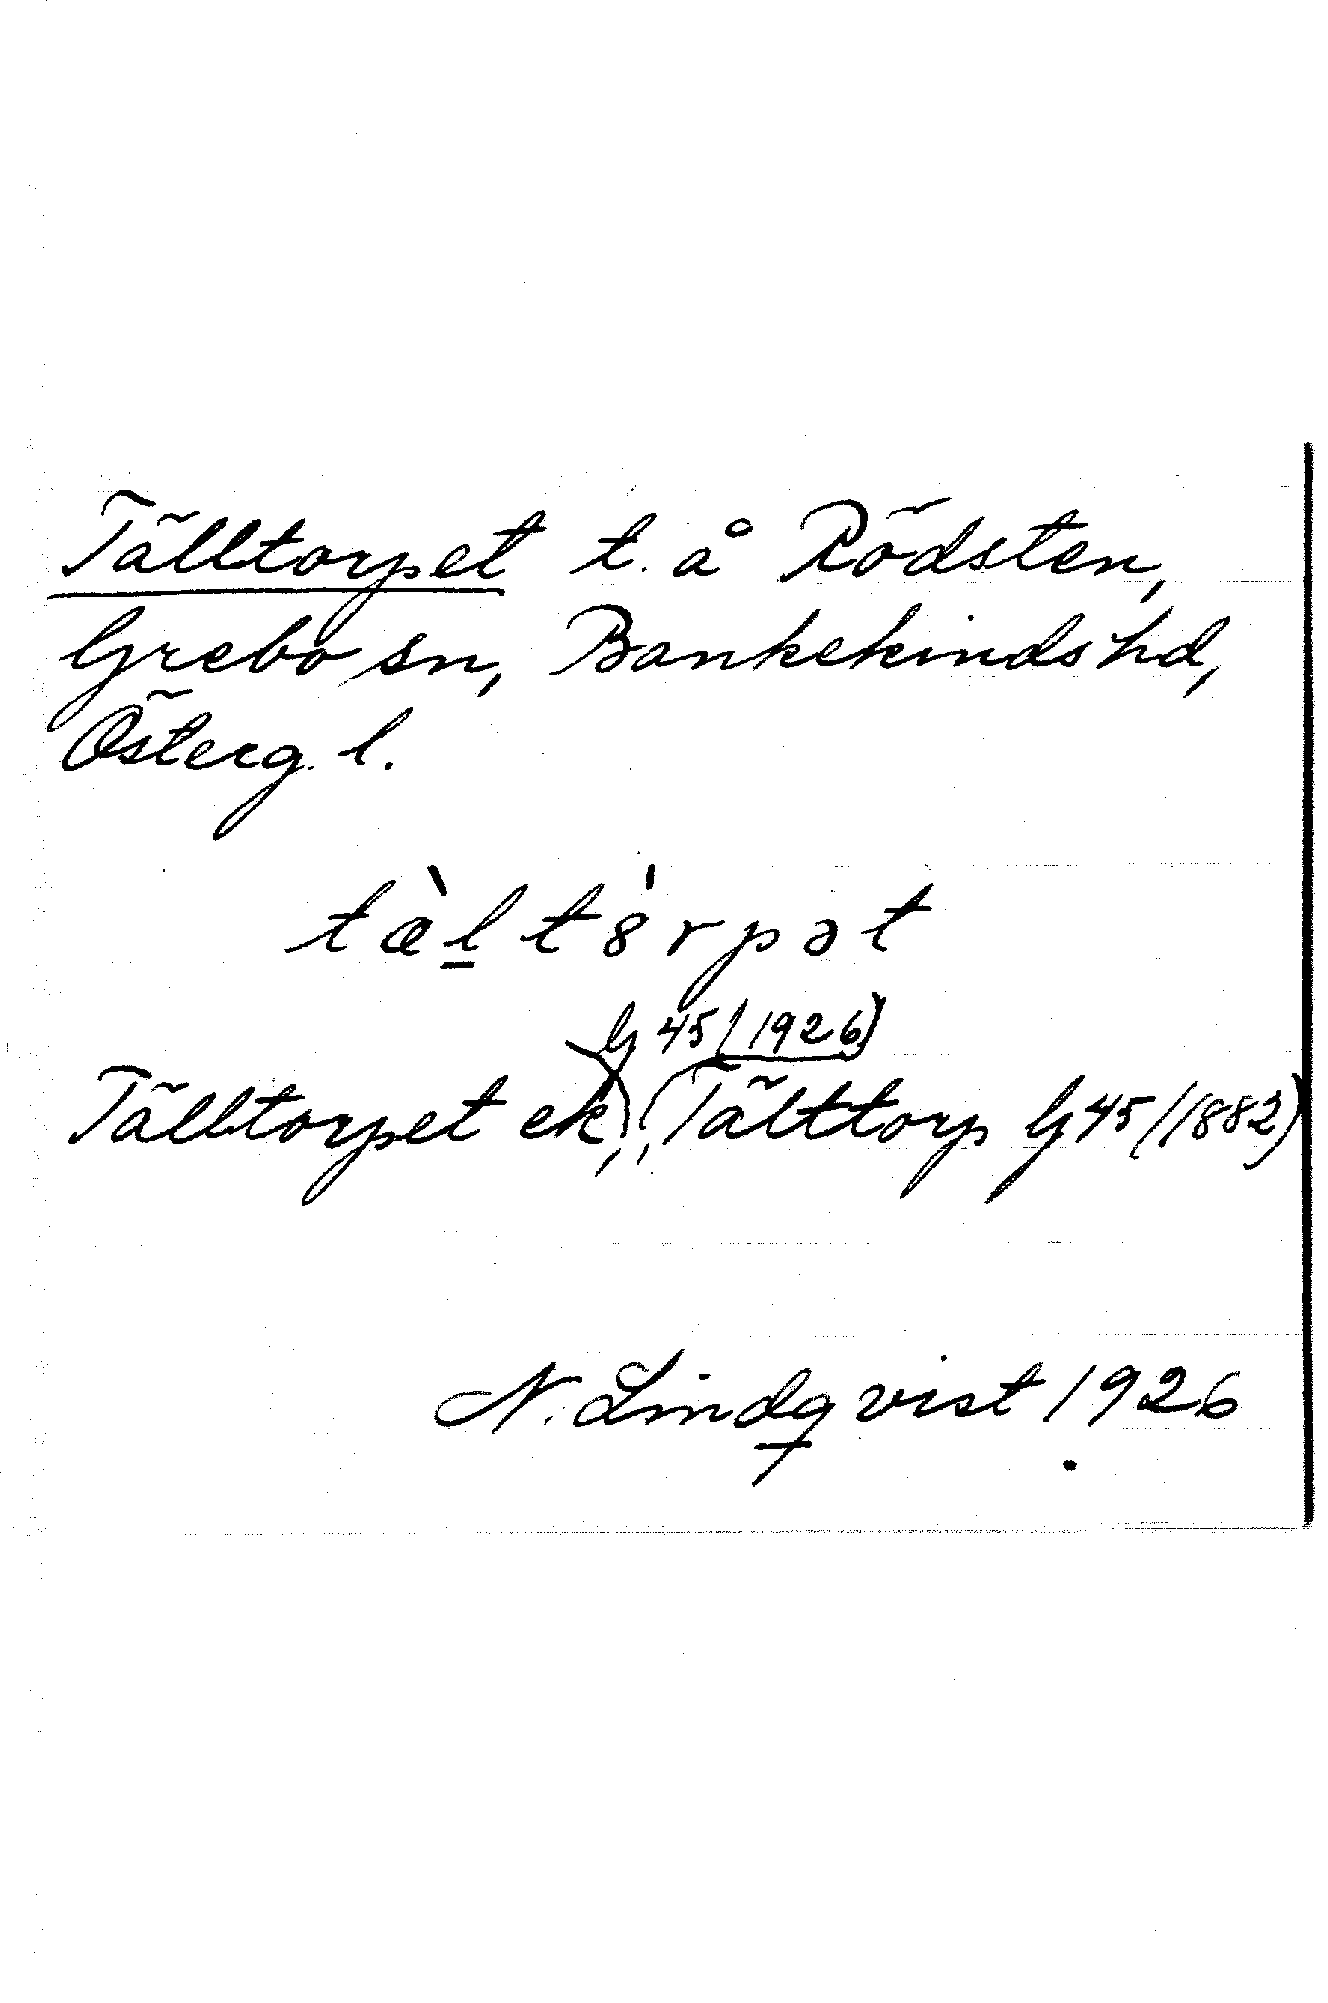 Tälltorpet t. å Rödsten,
Grebo sn, Bankekinds hd,
Österg. l.
tæ̀ḻt8̍rpət
G 45 (1926)
Tälltorpet ek, (Tälttorp G 45 (1882)
N. Lindqvist 1926